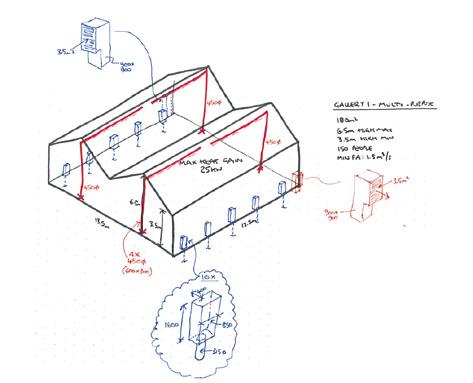 3.5m²
900x
900
GALLERY 1 - MULTI-PURPOSE
180m²
6.5m HIGH MAX
3.5m HIGH MIN
150 PEOPLE
MIN FA: 1.5m³/s
450Ø
450Ø
MAX HEAT GAIN
25kW
450Ø
6.5
m
3.5
m
13.5
m
13.5m
3.5m²
900x
900
4x
450Ø
(600x300)
10x
400
1600
850
315Ø